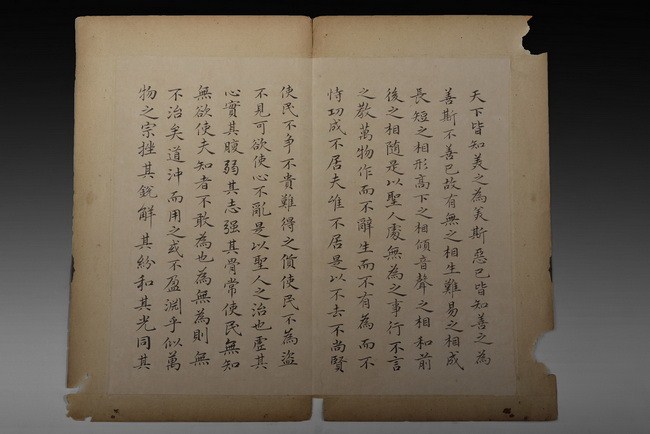 天下皆知美之為美斯惡已皆知善之為
善斯不善已故有無之相生難易之相成
長短之相形高下之相傾音聲之相和前
後之相隨是以聖人處無為之事行不言
之教萬物作而不辭生而不有為而不
恃功成不居夫惟不居是以不去不尚賢
使民不争不貴難得之貨使民不為盜
不見可欲使心不亂是以聖人之治也虛其
心實其腹弱其志强其骨常使民無知
無欲使夫知者不敢為也為無為則無
不治矣道沖而用之或不盈淵乎似萬
物之宗挫其銳解其紛和其光同其